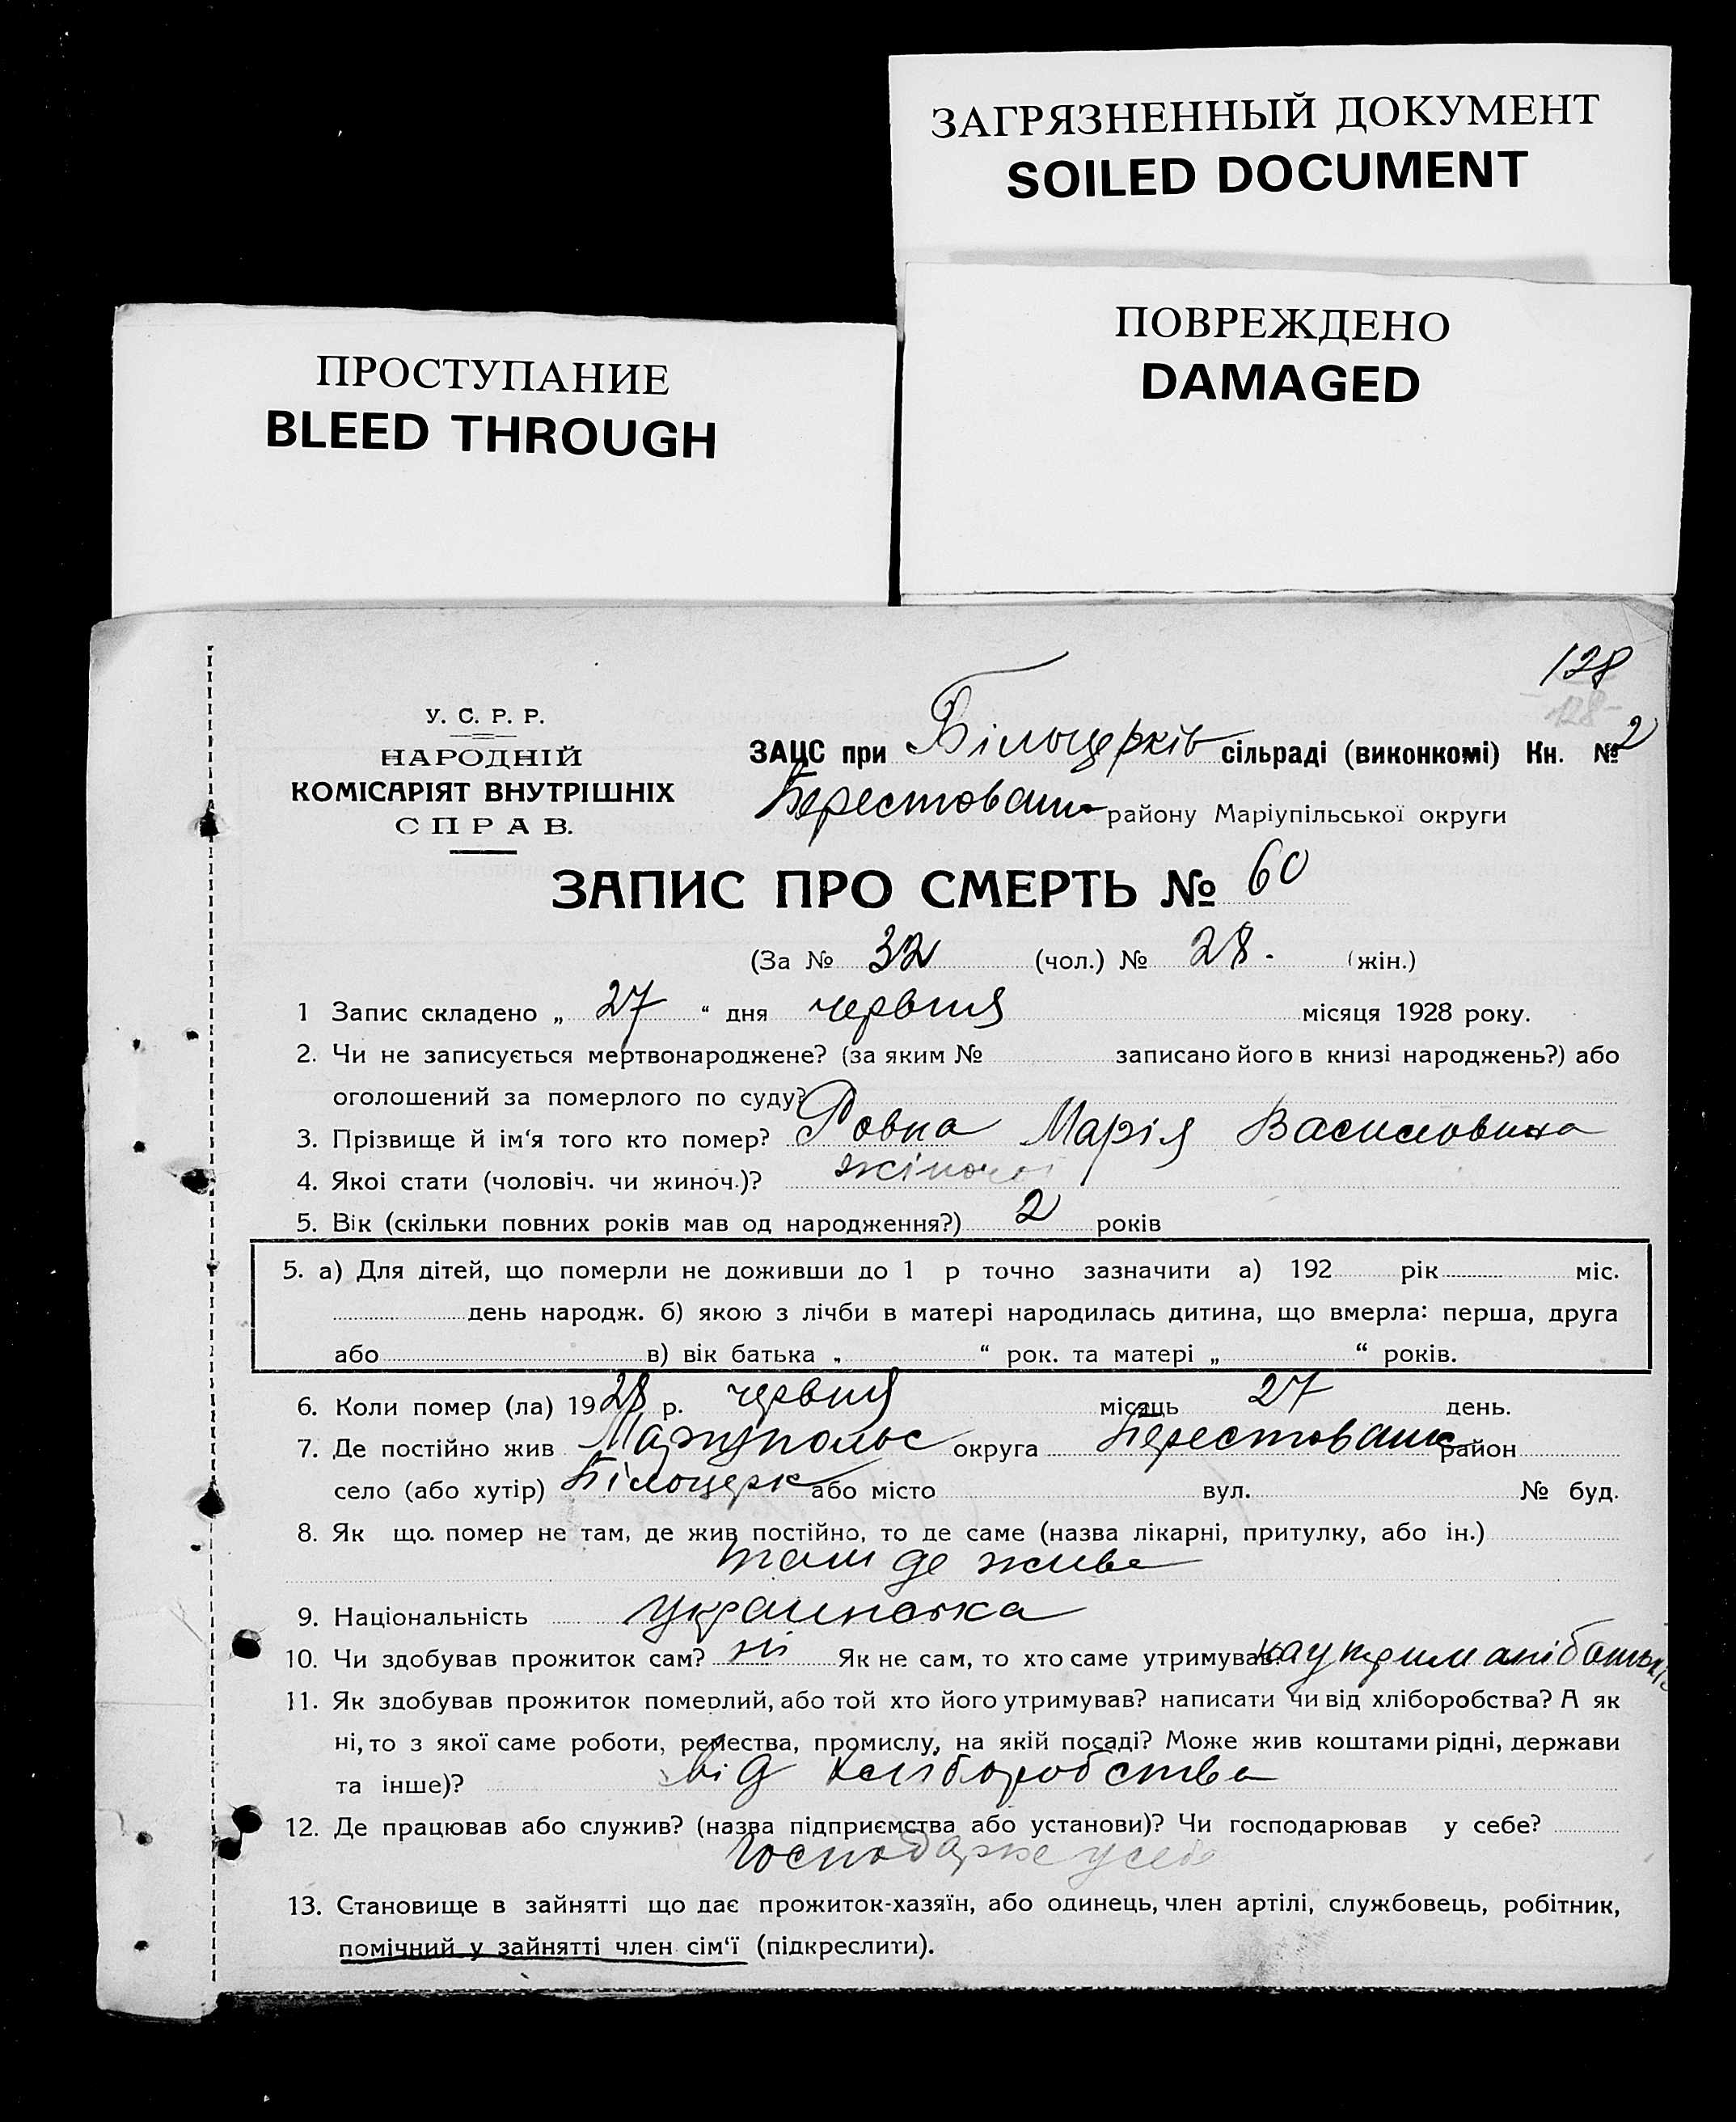 ЗАГРЯЗНЕННЫЙ ДОКУМЕНТ
SOILED DOCUMENT
ПОВРЕЖДЕНО
DAMAGED
ПРОСТУПАНИЕ
BLEED THROUGH
128
128
У. С. Р. Р.
НАРОДНІЙ
КОМІСАРІЯТ ВНУТРІШНІХ
СПРАВ.
ЗАЦС при Білоцерків сільраді (виконкомі) Кн. № 2
Берестован району Маріупільської округи
ЗАПИС ПРО СМЕРТЬ № 60
(За № 32 (чол.) № 28. (жін.)
1 Запис складено „ 27 “ дня червня місяця 1928 року.
2. Чи не записується мертвонароджене? (за яким № записано його в книзі народжень?) або
оголошений за померлого по суду?
3. Прізвище й ім‘я того кто помер? Ровна Марія Василовина
4. Якої стати (чоловіч. чи жиноч.)? жіночої
5. Вік (скільки повних років мав од народження?) 2 років
5. а) Для дітей, що померли не доживши до 1 р точно зазначити а) 192 рік міс.
день народж. б) якою з лічби в матері народилась дитина, що вмерла: перша, друга
або в) вік батька „ “ рок. та матері „ “ років.
6. Коли помер (ла) 1928 р. червня місяць 27 день.
7. Де постійно жив округа район
село (або хутір) Білоцерк або місто вул. № буд.
8. Як що. помер не там, де жив постійно, то де саме (назва лікарні, притулку, або ін.)
там де живе
9. Національність украинська
10. Чи здобував прожиток сам? ні Як не сам, то хто саме утримував?
11. Як здобував прожиток померлий, або той хто його утримував? написати чи від хліборобства? А як
ні, то з якої саме роботи, ремества, промислу, на якій посаді? Може жив коштами рідні, держави
та інше)? від хліборобства
12. Де працював або служив? (назва підприємства або установи)? Чи господарював у себе?
господарює у себе
13. Становище в зайнятті що дає прожиток-хазяїн, або одинець, член артілі, службовець, робітник,
помічний у зайнятті член сім‘ї (підкреслити).